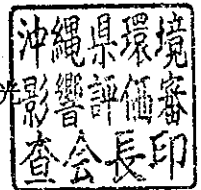 沖縄県環境
光
影響評価審
査会長印